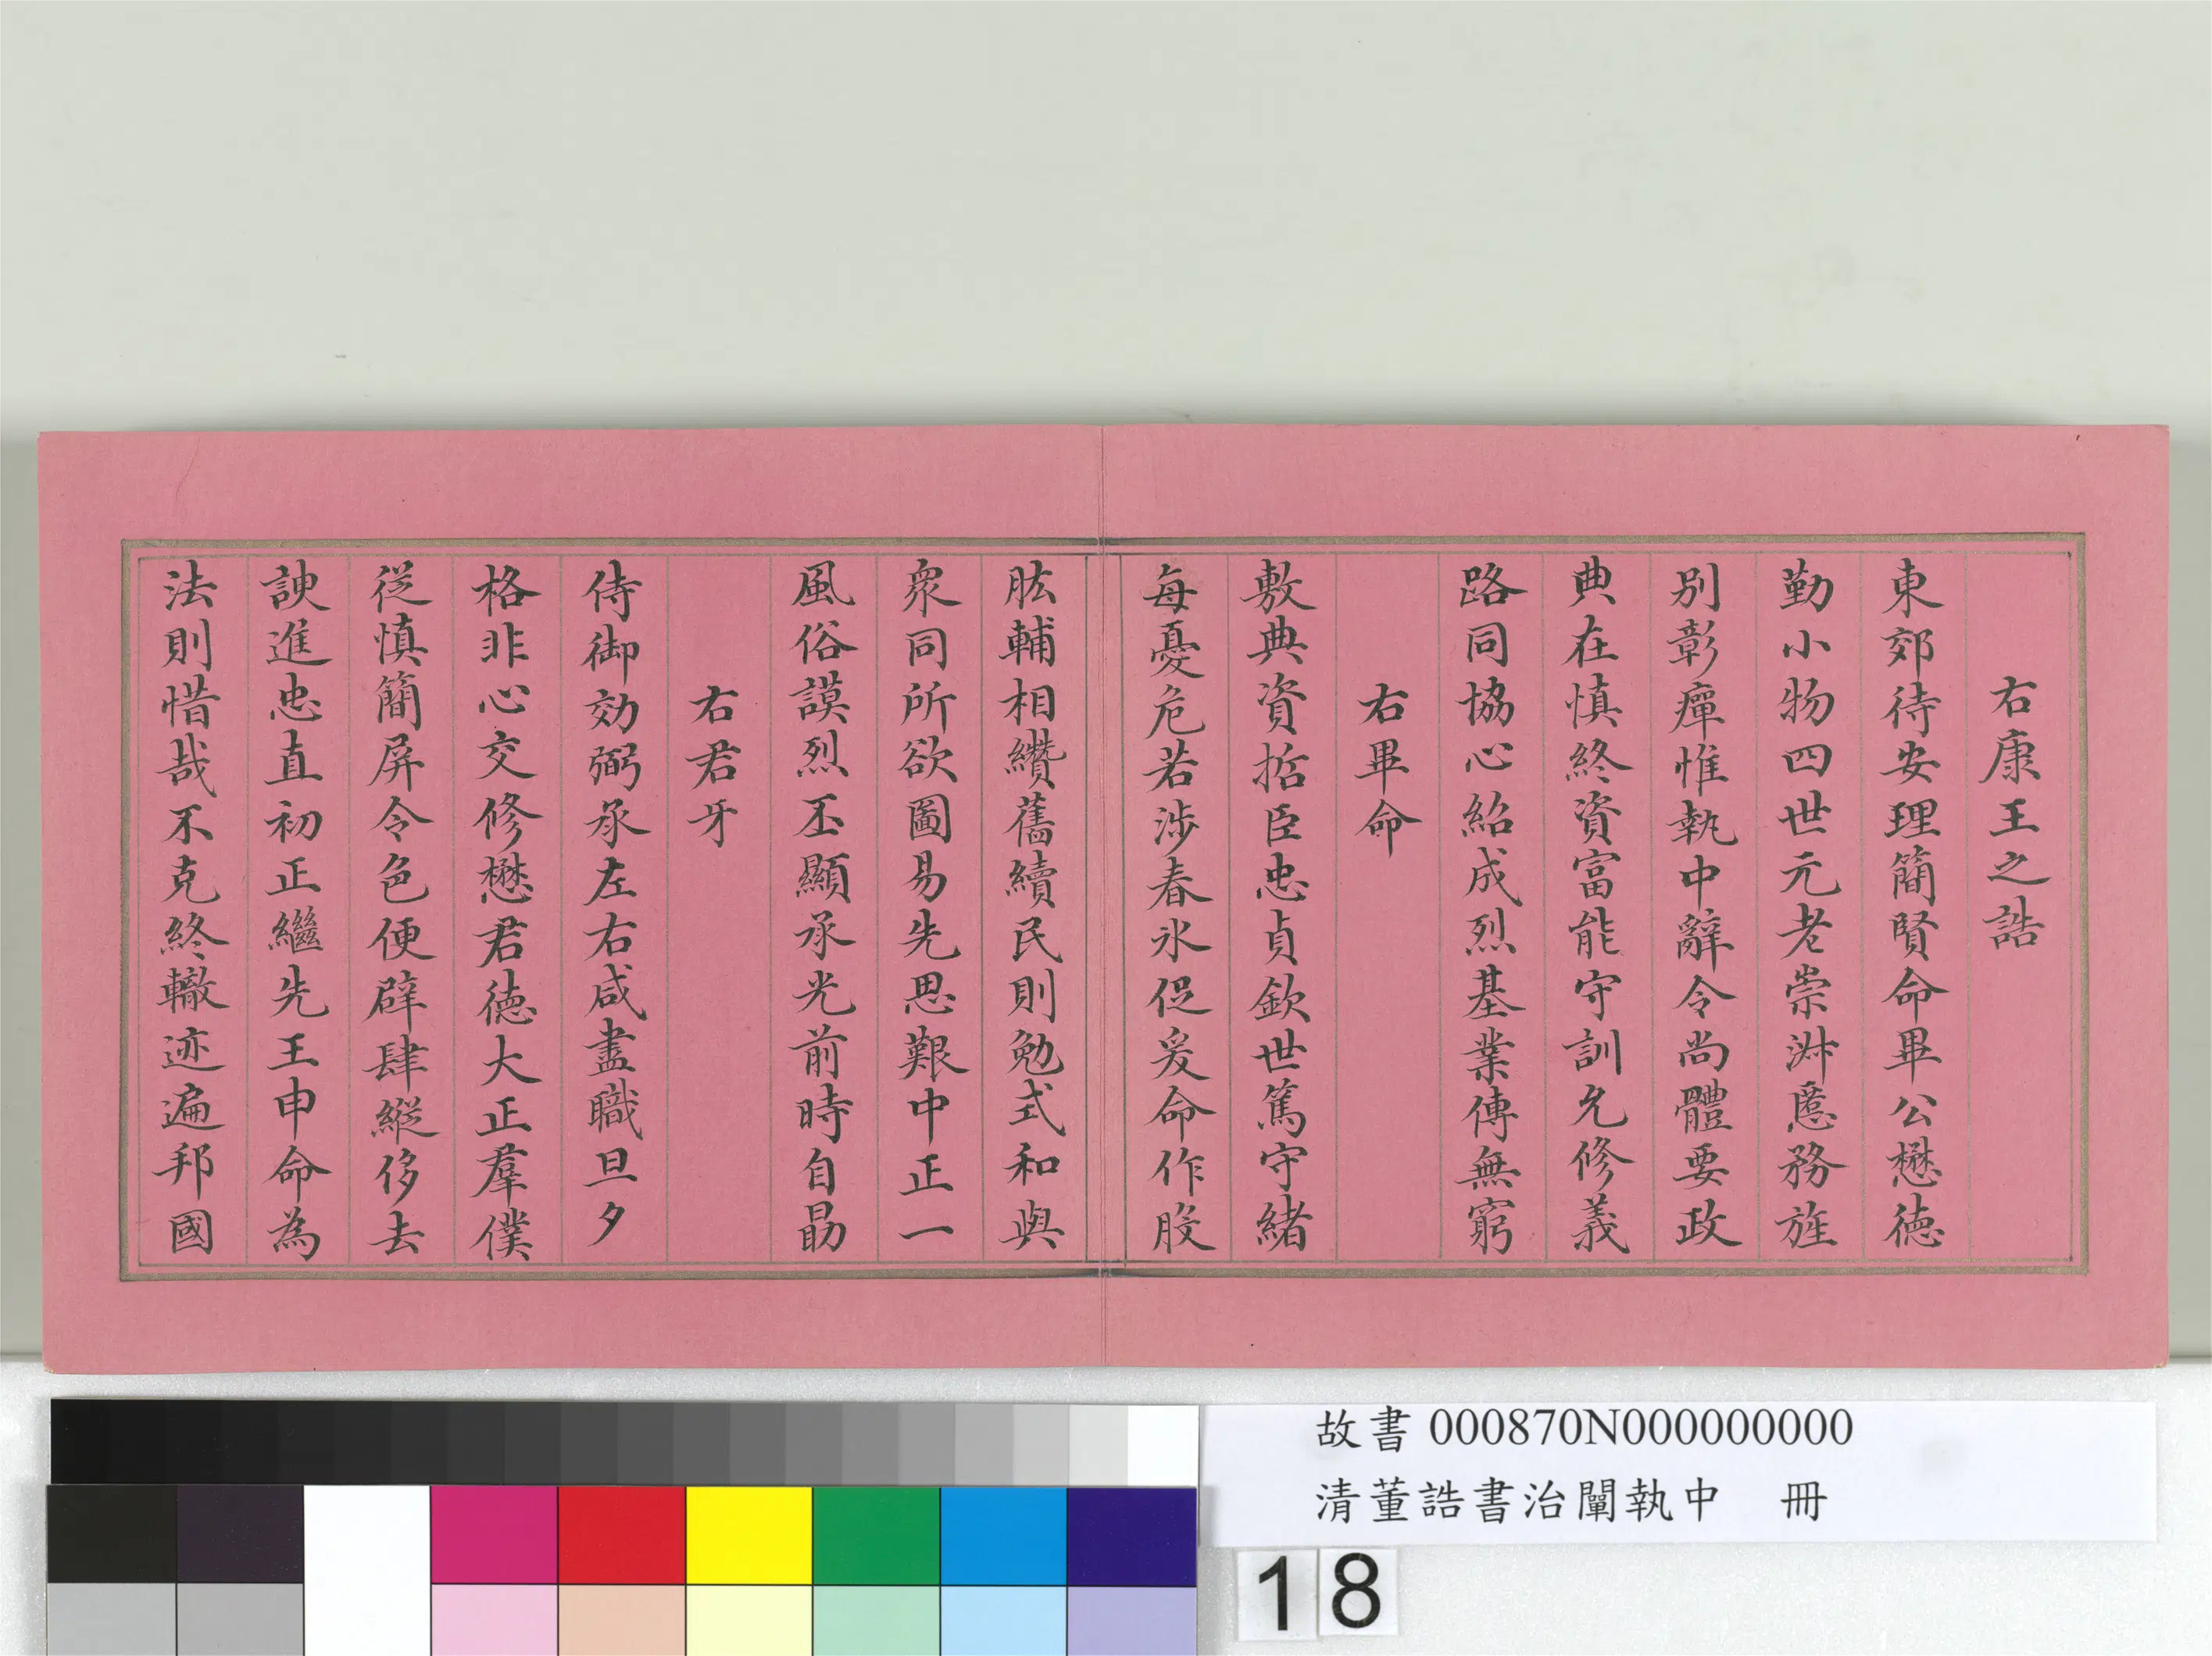 右康王之誥
東郊待安理簡賢命畢公懋德
勤小物四世元老崇淑慝務旌
別彰癉惟執中辭令尚體要政
典在慎終資富能守訓允修義
路同協心紹成烈基業傳無窮
右畢命
敷典資哲臣忠貞欽世篤守緒
每憂危若涉春氷促爰命作股
肱輔相纘舊續民則勉式和與
眾同所欲圖易先思艱中正一
風俗謨烈丕顯承光前時自勗
右君牙
侍御効弼承左右咸盡職旦夕
格非心交修懋君德大正羣僕
從慎簡屏令色便辟肆縱侈去
諛進忠直初正繼先王申命為
法則惜哉不克終轍迹遍邦國
故書 000870N000000000
清董誥書治闡執中 冊
18